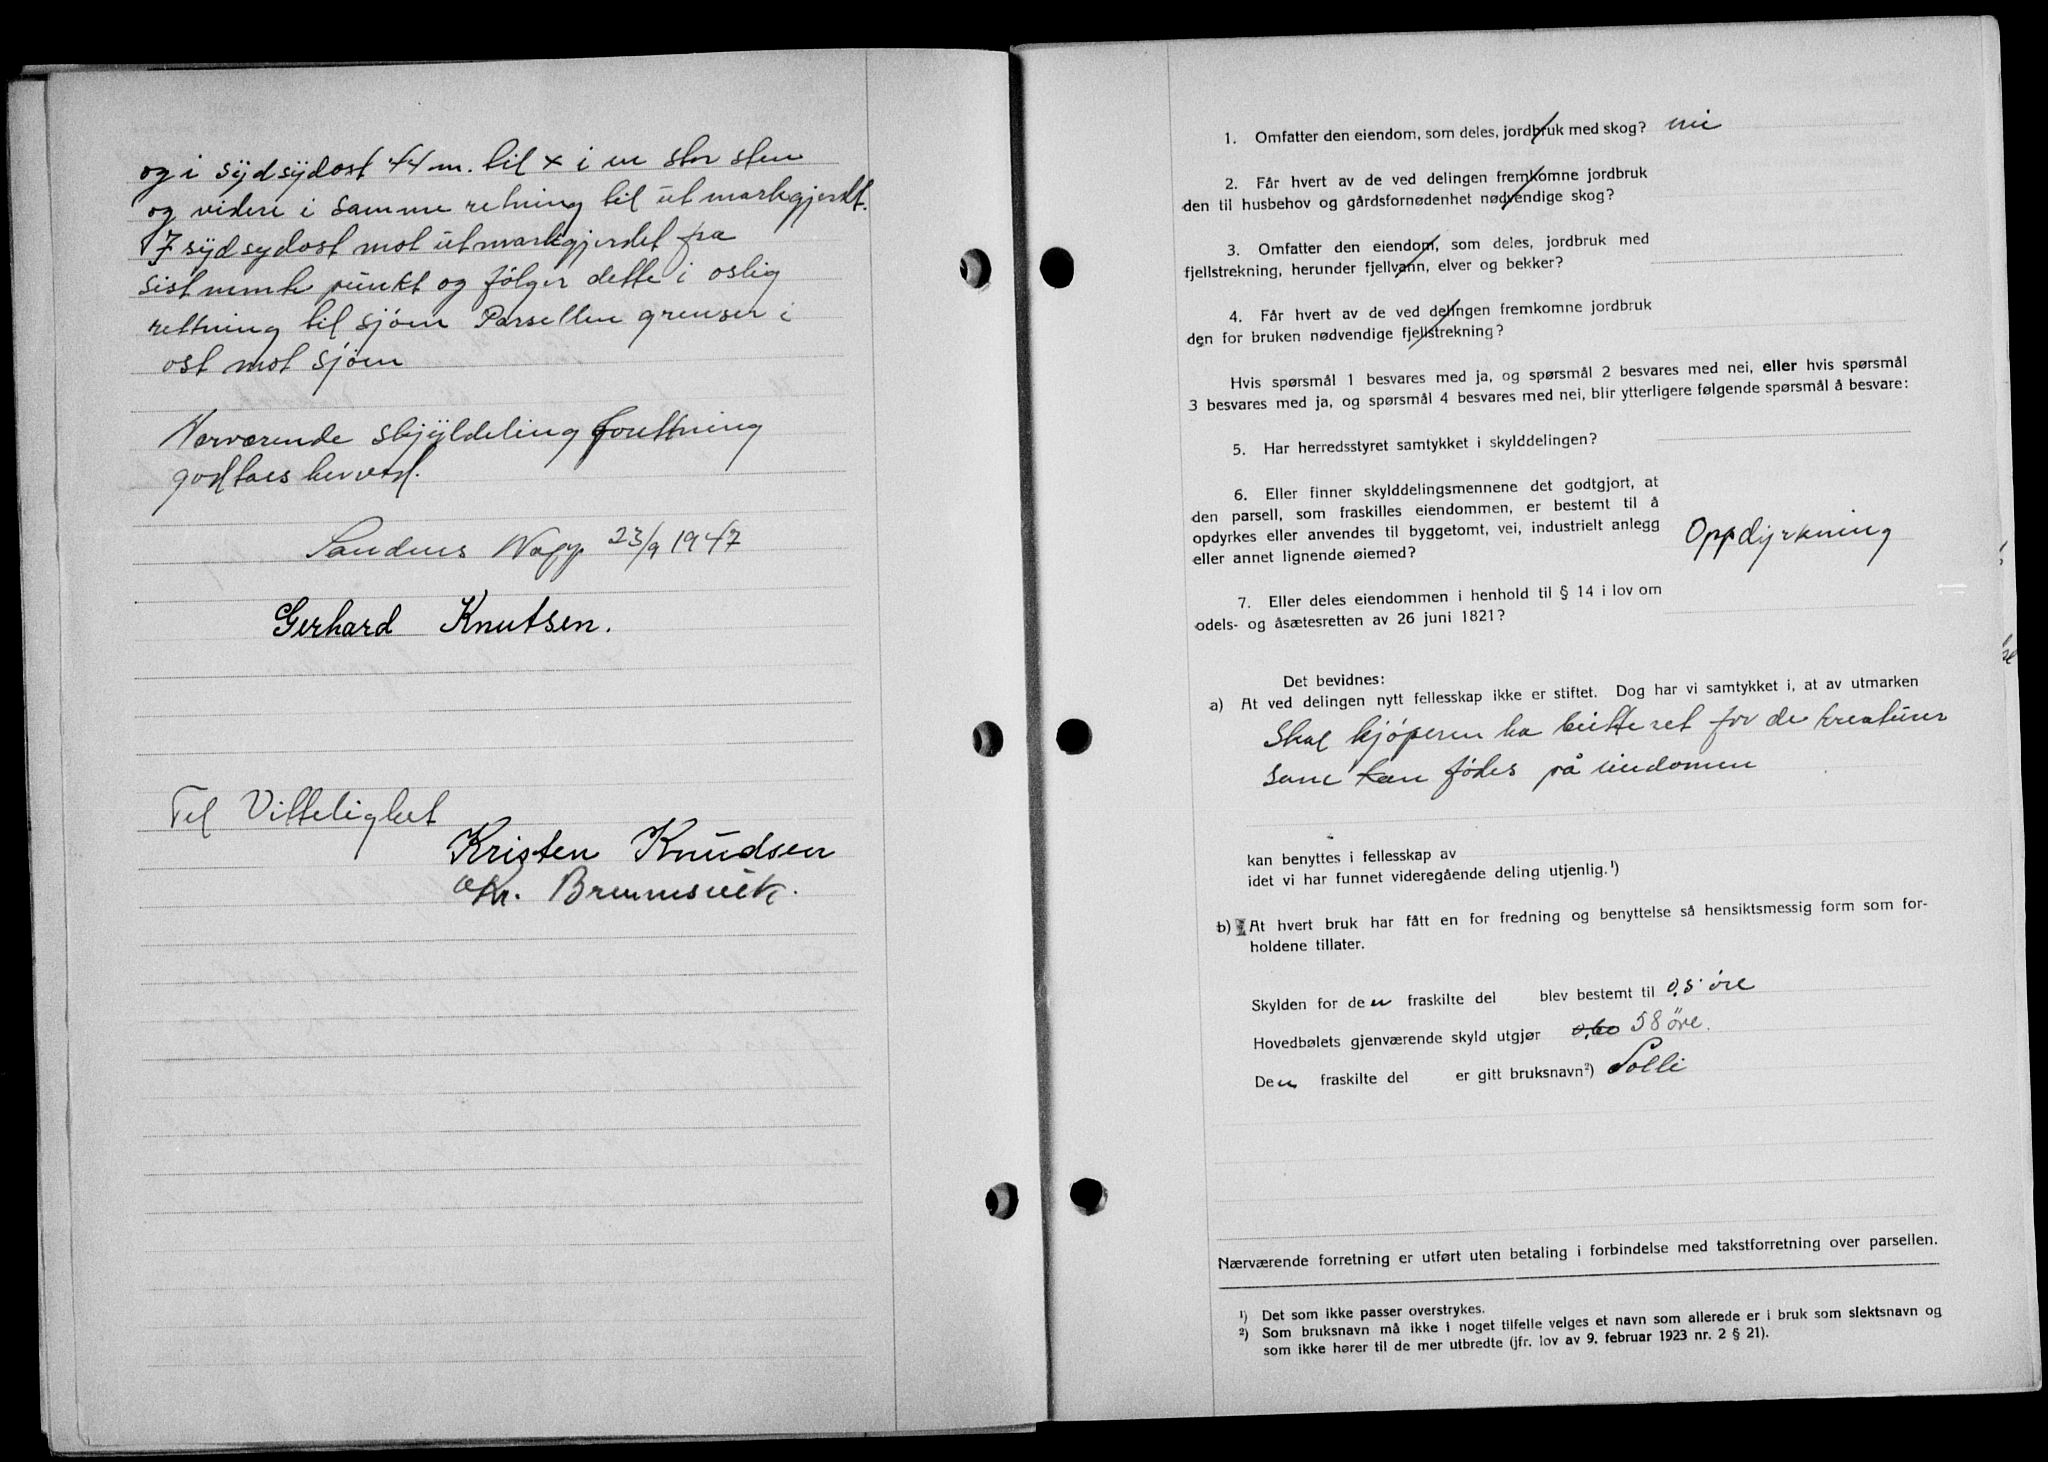 og i sydsydost 44 m. til x i en stor sten
og videre i samme retning til utmarkgjerdt.
I sydsydost mot utmarkgjerdet fra
sist nemte punkt og følger dette i ostig
rettning til sjøen Parsellen grenser i
ost mot sjøen
Nærværende skylddeling forettning
godtaes herved.
Sandnes Napp 23/9 1947
Gerhard Knutsen.
Til Vittelighet
Kristen Knudsen
Chr. Brunnsvik.
1. Omfatter den eiendom, som deles, jordbruk med skog? nei
2. Får hvert av de ved delingen fremkomne jordbruk
den til husbehov og gårdsfornødenhet nødvendige skog?
3. Omfatter den eiendom, som deles, jordbruk med
fjellstrekning, herunder fjellvann, elver og bekker?
4. Får hvert av de ved delingen fremkomne jordbruk
den for bruken nødvendige fjellstrekning?
Hvis spørsmål 1 besvares med ja, og spørsmål 2 besvares med nei, eller hvis spørsmål
3 besvares med ja, og spørsmål 4 besvares med nei, blir ytterligere følgende spørsmål å besvare:
5. Har herredsstyret samtykket i skylddelingen?
6. Eller finner skylddelingsmennene det godtgjort, at
den parsell, som fraskilles eiendommen, er bestemt til å
opdyrkes eller anvendes til byggetomt, vei, industrielt anlegg
eller annet lignende øiemed? Oppdyrkning
7. Eller deles eiendommen i henhold til § 14 i lov om
odels- og åsætesretten av 26 juni 1821?
Det bevidnes:
a) At ved delingen nytt fellesskap ikke er stiftet. Dog har vi samtykket i, at av utmarken
Skal kjøperen ha beitteret for de kreaturer
som kan fødes på eiendomen
kan benyttes i fellesskap av
idet vi har funnet videregående deling utjenlig.¹)
b) At hvert bruk har fått en for fredning og benyttelse så hensiktsmessig form som for-
holdene tillater.
Skylden for den fraskilte del blev bestemt til 0,5 øre
Hovedbølets gjenværende skyld utgjør 0,60 58 øre.
Den fraskilte del er gitt bruksnavn²) Solli
Nærværende forretning er utført uten betaling i forbindelse med takstforretning over parsellen.
¹) Det som ikke passer overstrykes.
²) Som bruksnavn må ikke i noget tilfelle velges et navn som allerede er i bruk som slektsnavn og
som ikke hører til de mer utbredte (jfr. lov av 9. februar 1923 nr. 2 § 21).